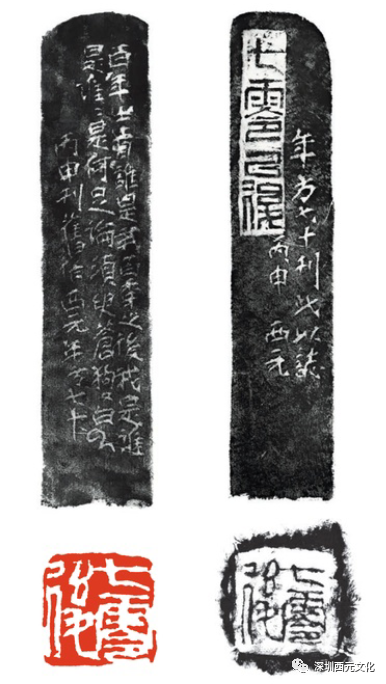 百年之前誰是我百年之後我是誰
是誰〻是何足論須臾蒼狗又白雲
丙申刊舊 西元年方七十
七零
年方七十刊此以誌
丙申 西元
七零
七零
深圳西元文化